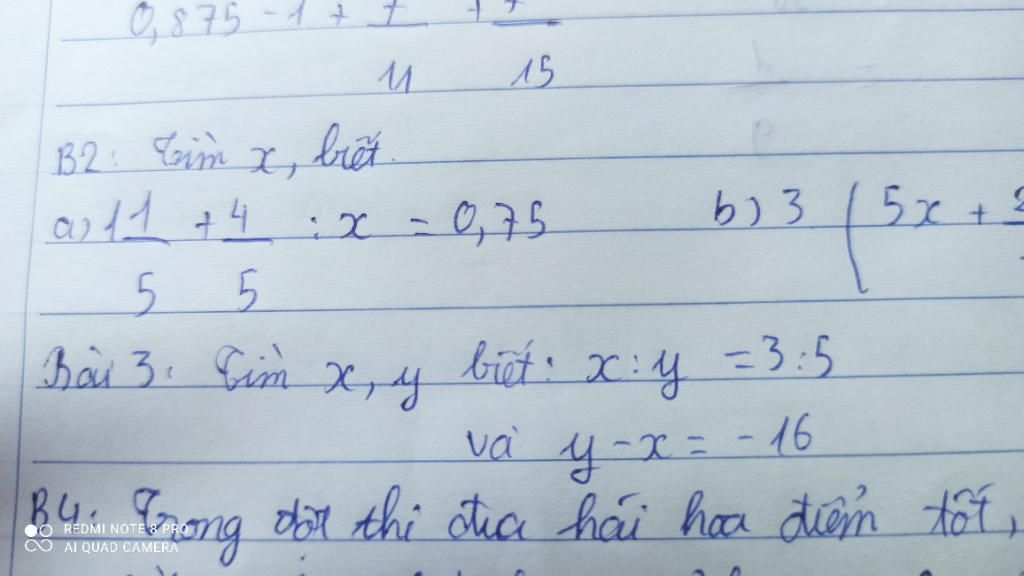 0,875 - 1 + 7/11 + 7/15
B2: Tìm x, biết.
a) 1 1/5 + 4/5 : x = 0,75 b) 3 ( 5x +
Bài 3: Tìm x, y biết: x : y = 3 : 5
và y - x = -16
B4: Trong đợt thi đua hái hoa điểm tốt,
REDMI NOTE 8 PRO
AI QUAD CAMERA